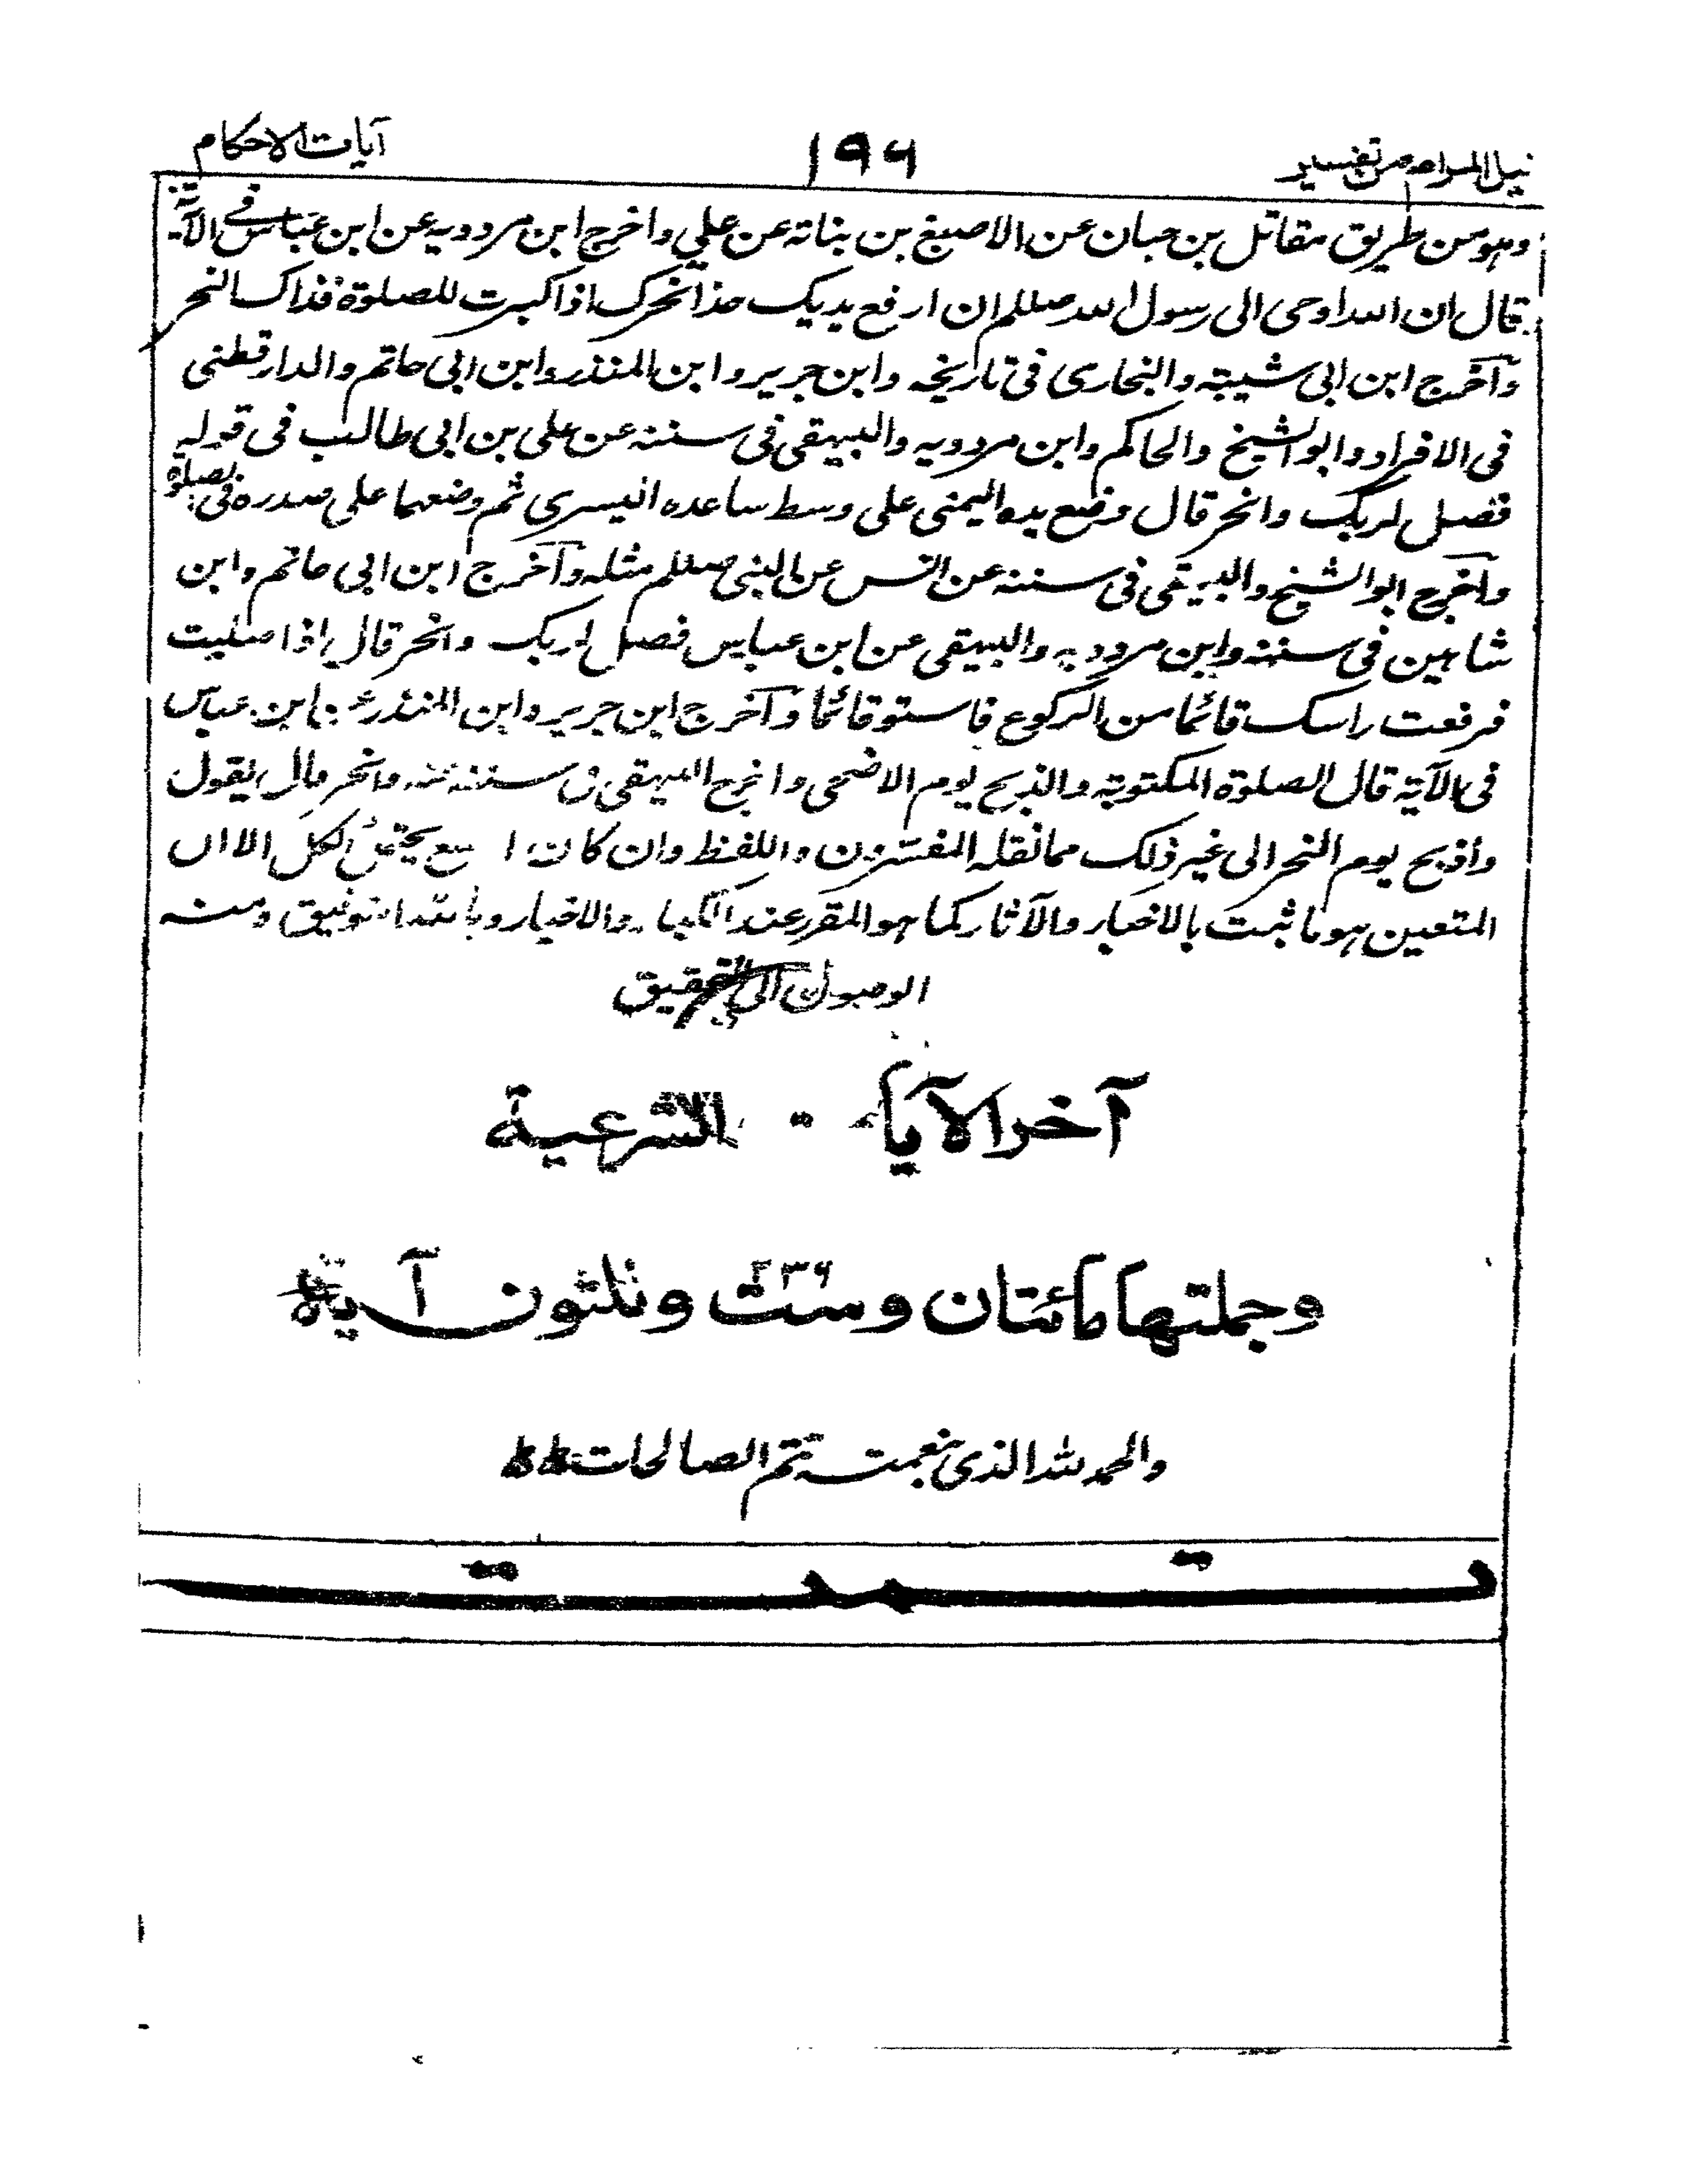 نيل المرام من تفسير
١٩٦
آيات الاحكام
وهو من طريق مقاتل بن حبان عن الاصبغ بن بناتة عن علي واخرج ابن مردويه عن ابن عباس في الآية
قال ان الله اوحى الى رسول الله صللم ان ارفع يديك حذا نحرك اذا كبرت للصلوة فذاك النحر
وآخرج ابن ابى شيبة والبخارى فى تاريخه وابن جرير وابن المنذر وابن ابى حاتم والدارقطنى
فى الافراد وابو الشيخ والحاكم وابن مردويه والبيهقى فى سننه عن على بن ابى طالب فى قوله
فصل لربك وانحر قال وضع يده اليمنى على وسط ساعده اليسرى ثم وضعهما على صدره فى الصلوة
وآخرج ابو الشيخ والبيهقى فى سننه عن انس عن النبى صللم مثله وآخرج ابن ابى حاتم وابن
شاهين فى سننه وابن مردويه والبيهقى عن ابن عباس فصل لربك وانحر قال اذا صليت
فرفعت راسك قائما من الركوع فاستو قائما وآخرج ابن جرير وابن المنذر عن ابن عباس
فى الآية قال الصلوة المكتوبة والذبح يوم الاضحى واخرج البيهقى فى سننه عنه وانحر قال يقول
واذبح يوم النحر الى غير ذلك مما نقله المفسرون واللفظ وان كان يحتمل لكل الا ان
المتعين هو ما ثبت بالاخبار والآثار كما هو المقرر عند الكبار والاخيار وبالله التوفيق ومنه
الوصول الى التحقيق
آخر الآيات الشرعية
وجملتها مائتان وست وثلثون آية
٢٣٦
والحمد لله الذى بنعمته تتم الصالحات
تمت